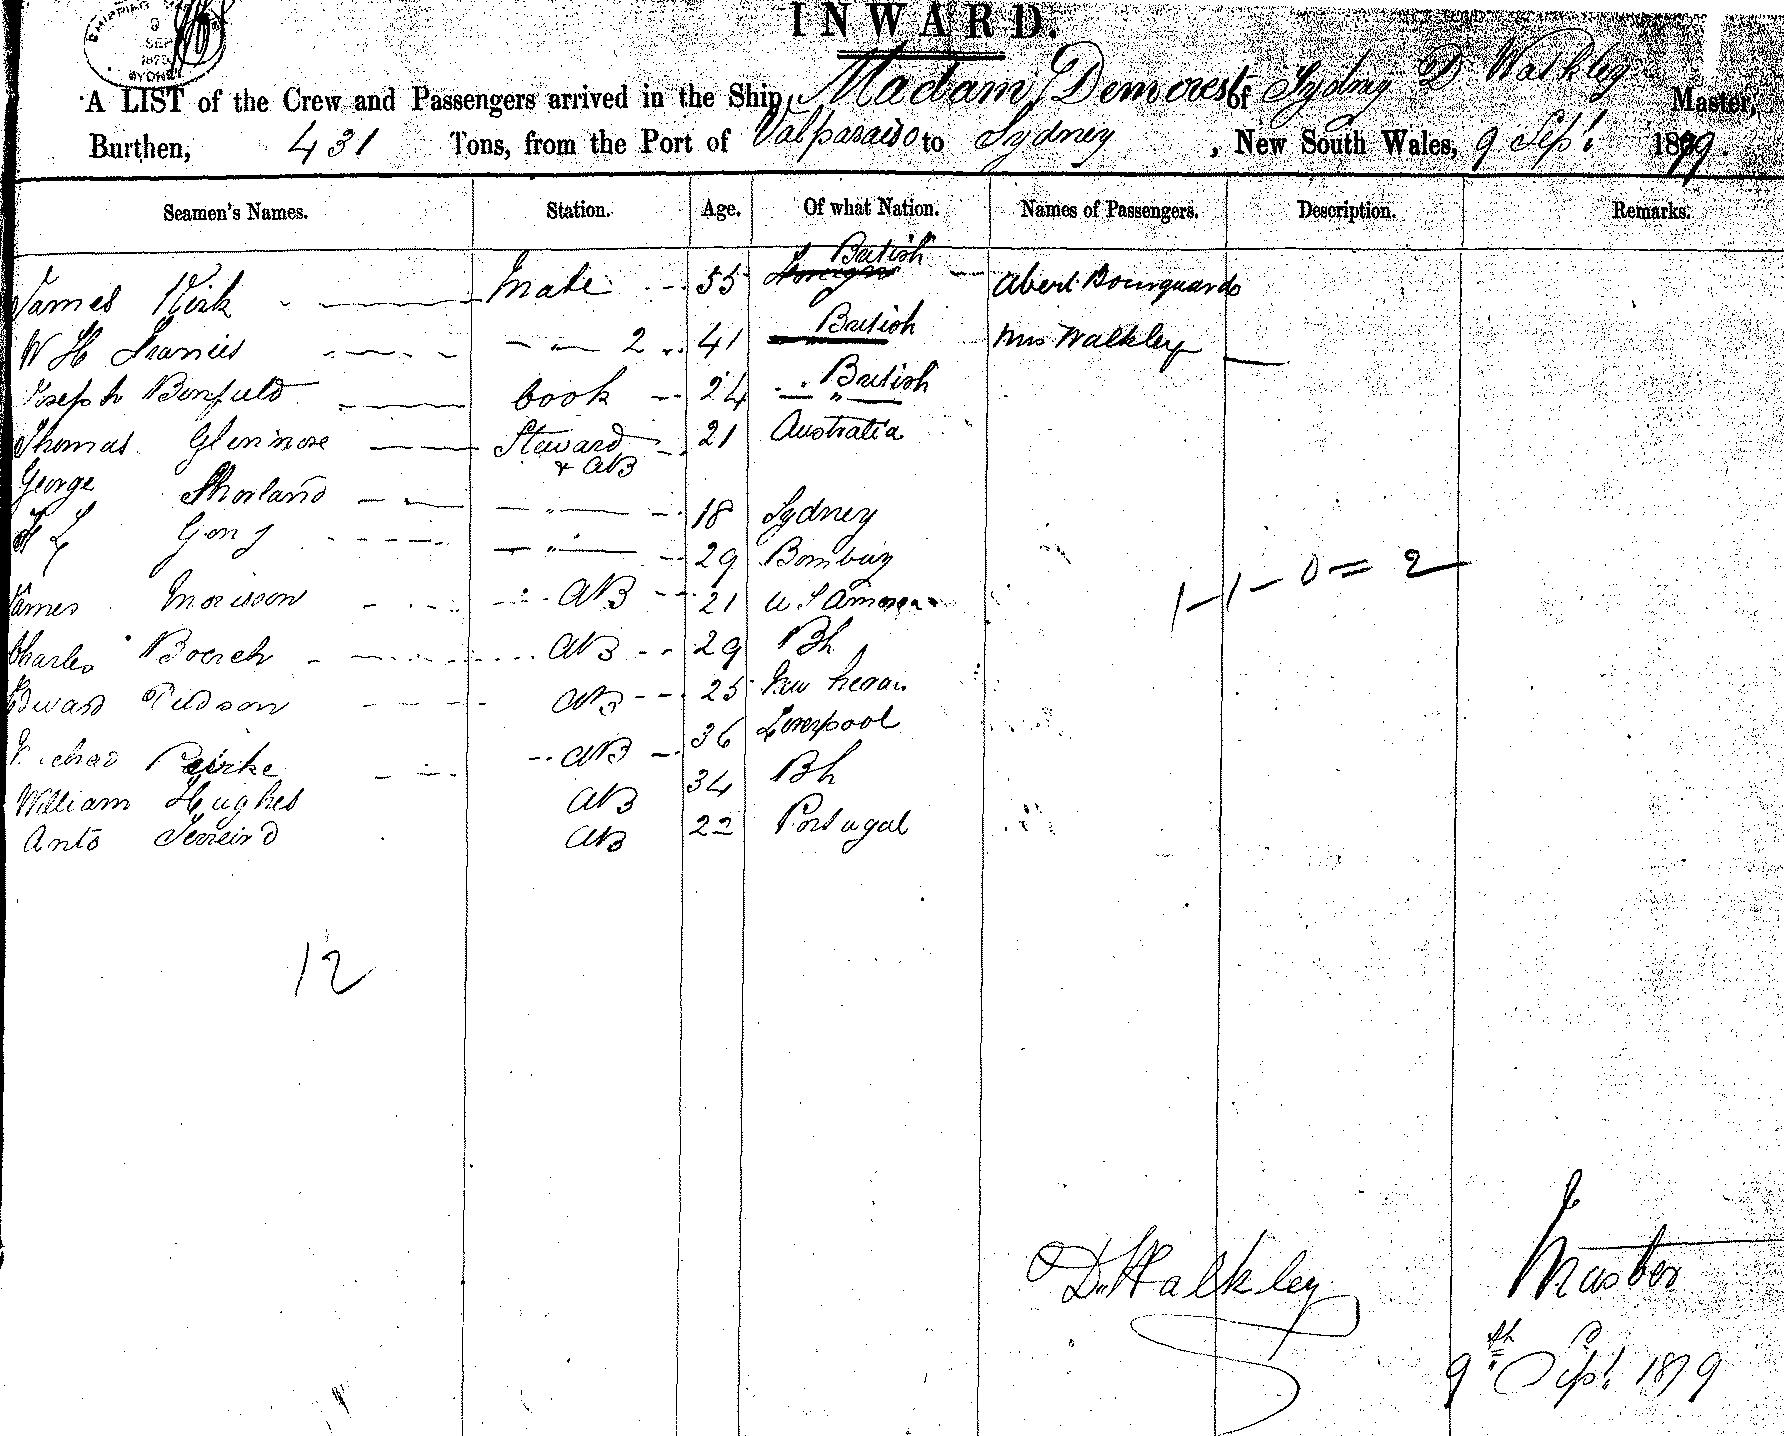 SHIPPING
9
SEP
1879
SYDNEY
INWARD.
A LIST of the Crew and Passengers arrived in the Ship, Madam Demorest of Sydney D Walkley Master,
Burthen, 431 Tons, from the Port of Valparaiso to Sydney, New South Wales, 9 Sept. 1879.
Seamen's Names. Station. Age. Of what Nation. Names of Passengers. Description. Remarks.
James Kirk Mate 55 British Abert Bourquard
W H Francis " 2 41 British Mrs Walkley
Joseph Benfield Cook 24 " British
Thomas Glenmore Steward & AB 21 Australia
George Shorland " 18 Sydney
Gong " 29 Bombay
James Morisson AB 21 U S America
Charles Boerch AB 29 Bh
Edward Tudson AB 25 New
AB 36 Liverpool
William Hughes AB 34 Bh
Anto AB 22 Portugal
1-1-0=2
12
D. Walkley
Master
9th Sept. 1879